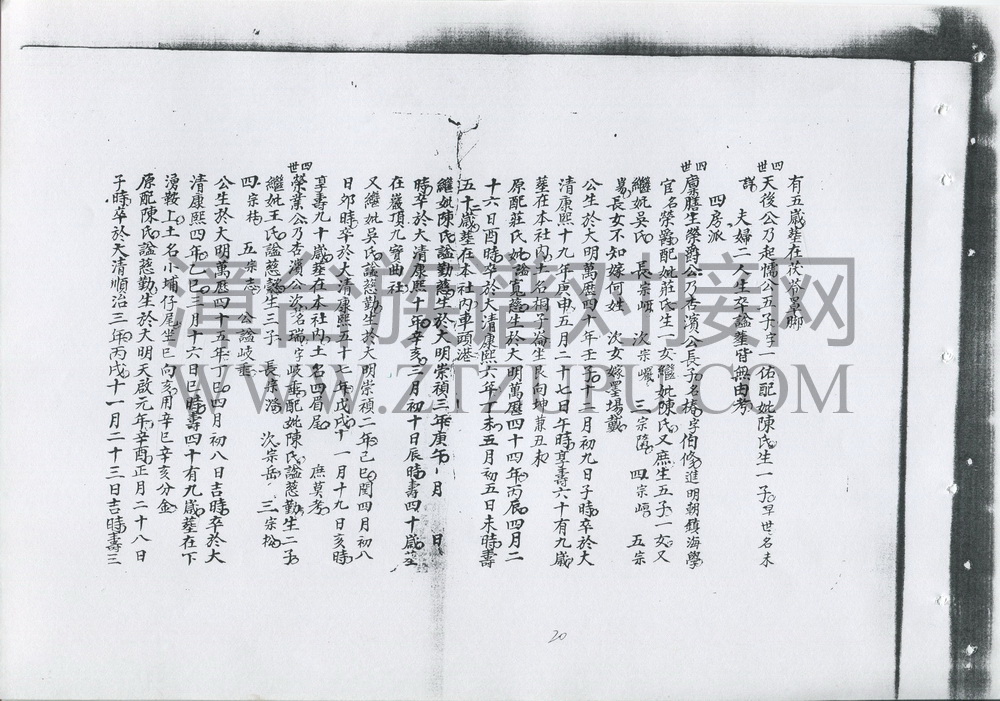 有五歲塟在茨後單脚
四世 天後公乃起懦公五子字一佑配妣陳氏生一子早世名未詳
夫婦二人生卒謚塟皆無由考
四房派
四世 廩膳生榮爵公乃杏濱公長子名椅字伯修進明朝鎮海學
官名榮爵配妣莊氏生一女繼妣陳氏又庶生五子一女又
繼妣吳氏 長宗岷 次宗巘 三宗 四宗 五宗
長女不知嫁何姓 次女嫁墨場戴
公生於大明萬曆四十年壬子十二月初九日子時卒於大
清康熙十九年庚申五月二十七日午時享壽六十有九歲
塟在本社內土名相子崙生艮向坤兼丑未
原配莊氏妣謚寬慈生於大明萬曆四十四年丙辰四月二
十六日酉時卒於大清康熙六年丁未五月初五日未時壽
五十歲塟在本社內車頭港
繼妣陳氏謚勤慈生於大明崇禎三年庚午八月 日
時卒於大清康熙十年辛亥二月初十日辰時壽四十歲塟
在巖頂九寶曲社
又繼妣吳氏謚慈勤生於大明崇禎二年己巳閏四月初八
日夘時卒於大清康熙五十七年戊戌十一月十九日亥時
享壽九十歲塟在本社內土名四眉尾 庶莫考
四世 榮業公乃杏濱公次名瑞字岐垂配妣陳氏謚慈勤生二子
繼妣王氏謚慈懿生三子 長宗 次宗岳 三宗松
四宗梅 五宗志 公謚岐垂
公生於大明萬曆四十五年丁巳四月初八日吉時卒於大
清康熙四年乙巳三月十六日巳時壽四十有九歲塟在下
湧鞍上土名小埔仔尾坐巳向亥用辛巳辛亥分金
原配陳氏謚慈勤生於大明天啟元年辛酉正月二十八日
子時卒於大清順治三年丙戌十一月二十三日吉時壽三
20
漳台族谱对接网
WWW.ZTZUPU.COM